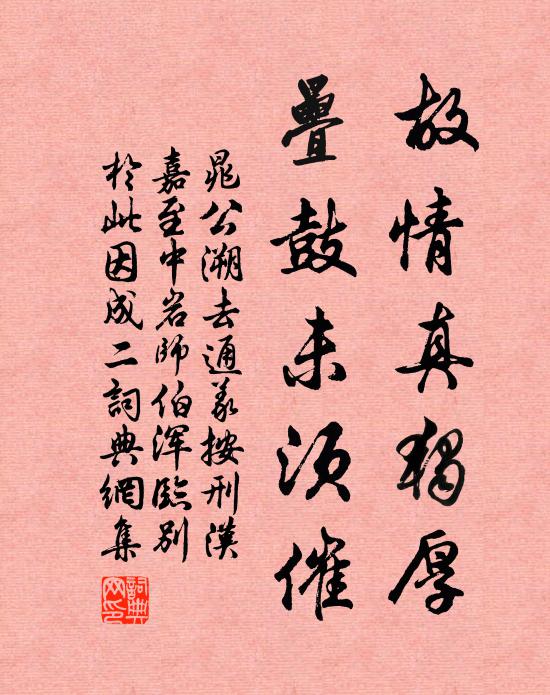 故情真獨厚
疊鼓未須催
晁公溯去通義按刑漢
嘉至中岩師伯渾臨別
於此因成二詞典網集
詞典網印